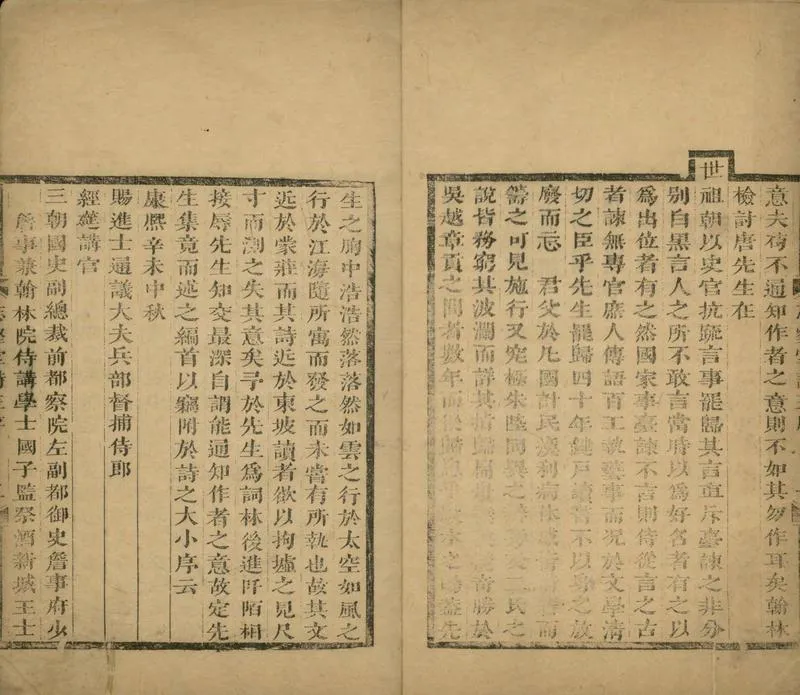 意夫苟不通知作者之意則不如其勿作耳矣翰林
檢討唐先生在
世祖朝以史官抗疏言事罷歸其言直斥臺諫之非分
別白黑言人之所不敢言當時以為好名者有之以
為出位者有之然國家事臺諫不言則侍從言之古
者諫無專官庶人傳語百工執藝事而況於文學清
切之臣乎先生罷歸四十年鍵戶讀書不以身之放
廢而忘 君父於凡國計民瘼利病
籌之可見施行又究極朱陸同異之
說皆務窮其波瀾而詳其指歸 奇勝於
吳越章貢之間者數年而於 蓋先
生之胷中浩浩然落落然如雲之行於太空如風之
行於江海隨所寓而發之而未嘗有所執也故其文
近於蒙莊而其詩近於東坡讀者欲以拘墟之見尺
寸而測之失其意矣予於先生為詞林後進阡陌相
接辱先生知交最深自謂能通知作者之意故定先
生集竟而述之編首以竊附於詩之大小序云
康熙辛未中秋
賜進士通議大夫兵部督捕侍郎
經筵講官
三朝國史副總裁前都察院左副都御史詹事府少
詹事兼翰林院侍講學士國子監祭酒新城王士